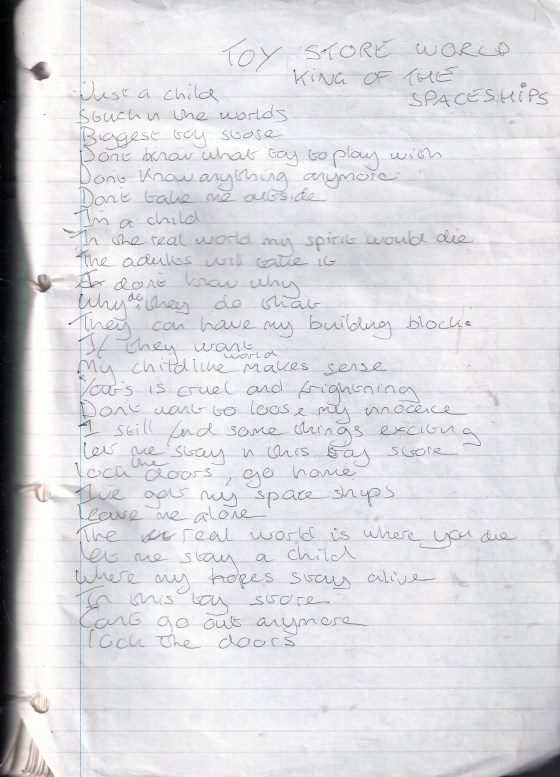 TOY STORE WORLD
KING OF THE
SPACESHIPS
Just a child
Stuck n the worlds
Biggest toy store
Dont know what toy to play with
Dont know anything anymore
Dont take me outside
Im a child
In the real world my spirit would die
The adults will take it
I dont know why
Why do they do that
They can have my building blocks
If they want
My childlike world makes sense
Yours is cruel and frightning
Dont want to loose my innocence
I still find some things exciting
Let me stay n this toy store
lock the doors, go home
I've got my space ships
Leave me alone
The real world is where you die
Let me stay a child
Where my hopes stay alive
In this toy store
Cant go out anymore
lock the doors